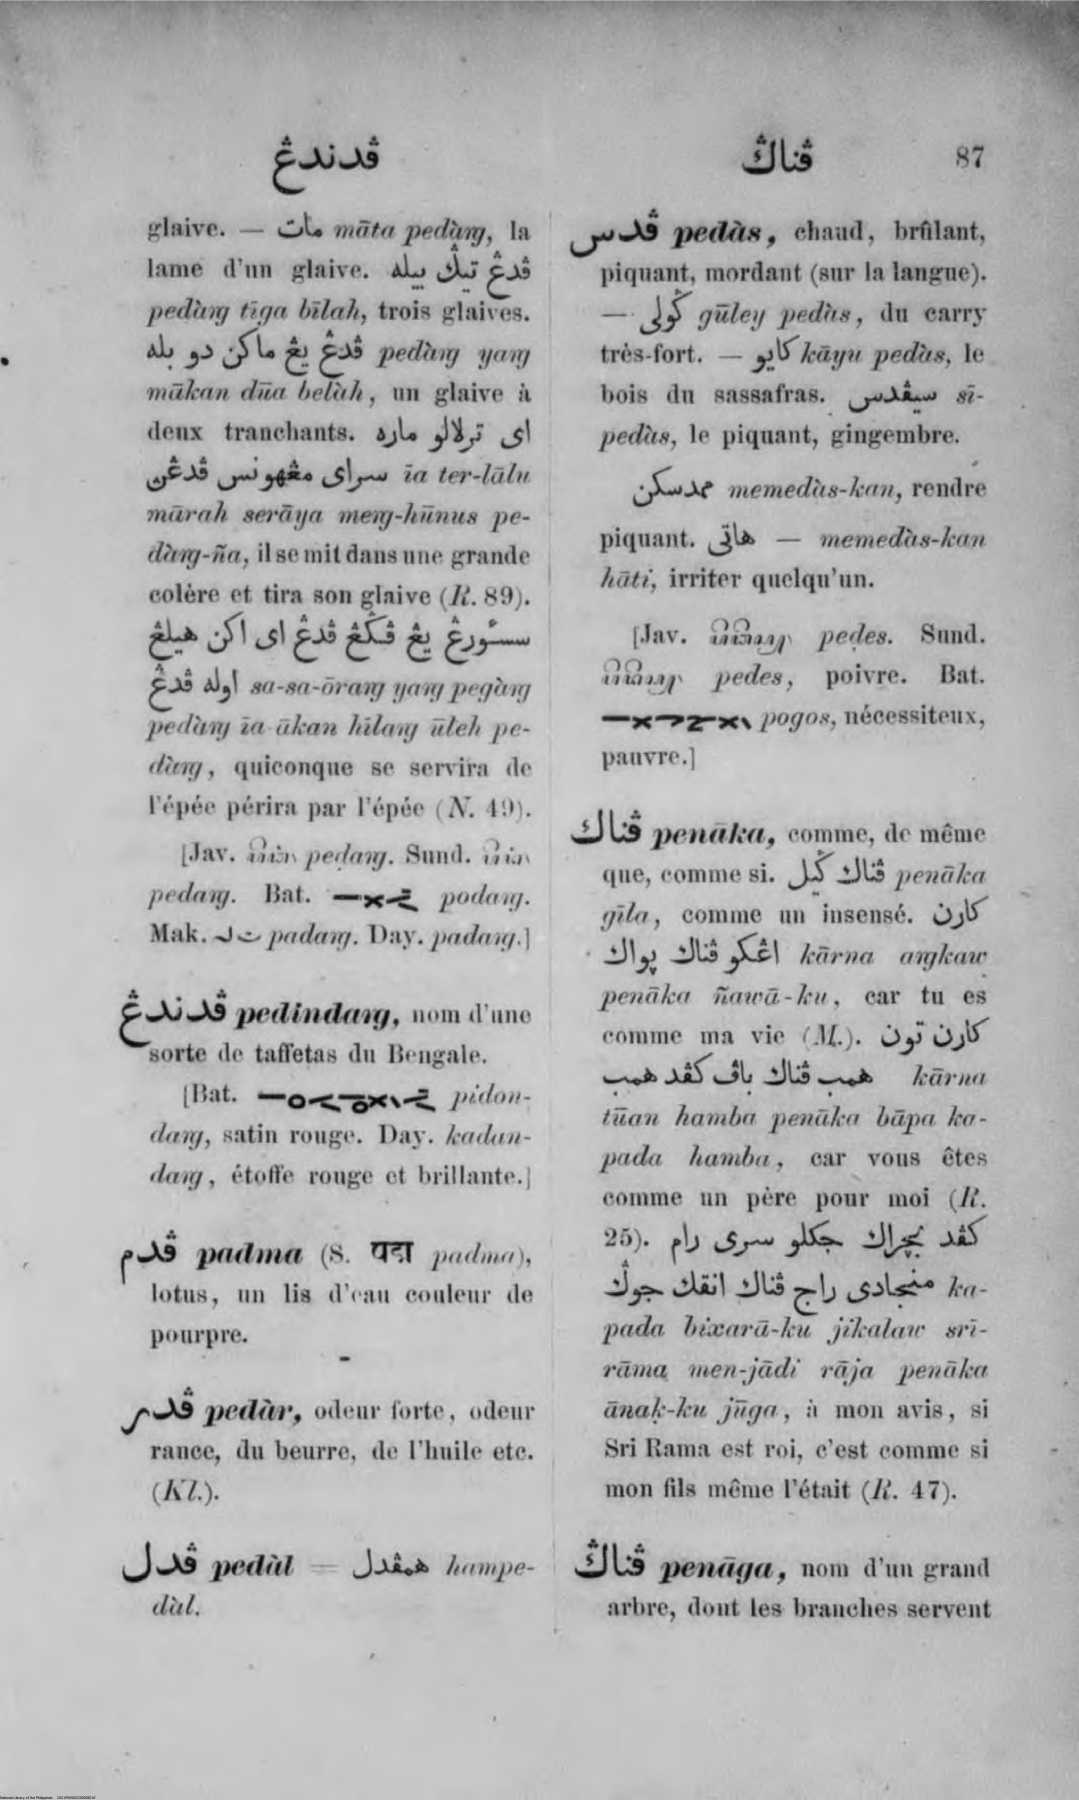 ڤدندڠ
ڤناڬ
87
glaive. — مات māta pedàrŋ, la
lame d'un glaive. ڤدڠ تيݢ بيله
pedàrŋ tīga bīlah, trois glaives.
ڤدڠ يڠ ماكن دو بله pedàrŋ yarŋ
mākan dūa belàh, un glaive à
deux tranchants. اى ترلالو ماره
سراى مڠهونس ڤدڠن īa ter-lālu
mārah serāya merŋ-hūnus pe-
dàrŋ-ña, il se mit dans une grande
colère et tira son glaive (R. 89).
يڠ ڤݢڠ ڤدڠ اى اكن هيلڠ
اوله ڤدڠ sa-sa-ōrarŋ yarŋ pegàrŋ
pedàrŋ īa ākan hīlarŋ ūleh pe-
dàrŋ, quiconque se servira de
l'épée périra par l'épée (N. 49).
[Jav. peḍarŋ. Sund.
pedarŋ. Bat. podarŋ.
Mak. padarŋ. Day. padarŋ.]
ڤدندڠ pedindarŋ, nom d'une
sorte de taffetas du Bengale.
[Bat. pidon-
darŋ, satin rouge. Day. kadan-
darŋ, étoffe rouge et brillante.]
ڤدم padma (S. पद्म padma),
lotus, un lis d'eau couleur de
pourpre.
ڤدر pedàr, odeur forte, odeur
rance, du beurre, de l'huile etc.
(Kl.).
ڤدل pedàl = همڤدل hampe-
dàl.
ڤدس pedàs, chaud, brûlant,
piquant, mordant (sur la langue).
— ݢولى gūley pedàs, du carry
très-fort. — كايو kāyu pedàs, le
bois du sassafras. سيڤدس sī-
pedàs, le piquant, gingembre.
ممدسكن memedàs-kan, rendre
piquant. هاتى — memedàs-kan
hāti, irriter quelqu'un.
[Jav. peḍes. Sund.
pedes, poivre. Bat.
pogos, nécessiteux,
pauvre.]
ڤناك penāka, comme, de même
que, comme si. ڤناك ݢيل penāka
gīla, comme un insensé. كارن
اڠكو ڤناك ڽواك kārna arŋkaw
penāka ñawā-ku, car tu es
comme ma vie (M.). كارن تون
همب ڤناك باڤ كڤد همب kārna
tūan hamba penāka bāpa ka-
pada hamba, car vous êtes
comme un père pour moi (R.
25). كڤد بچراك جكلو سرى رام
منجادى راج ڤناك انقك جوݢ ka-
pada bixarā-ku jikalaw srī-
rāma men-jādi rāja penāka
ānaḳ-ku jūga, à mon avis, si
Sri Rama est roi, c'est comme si
mon fils même l'était (R. 47).
ڤناݢ penāga, nom d'un grand
arbre, dont les branches servent